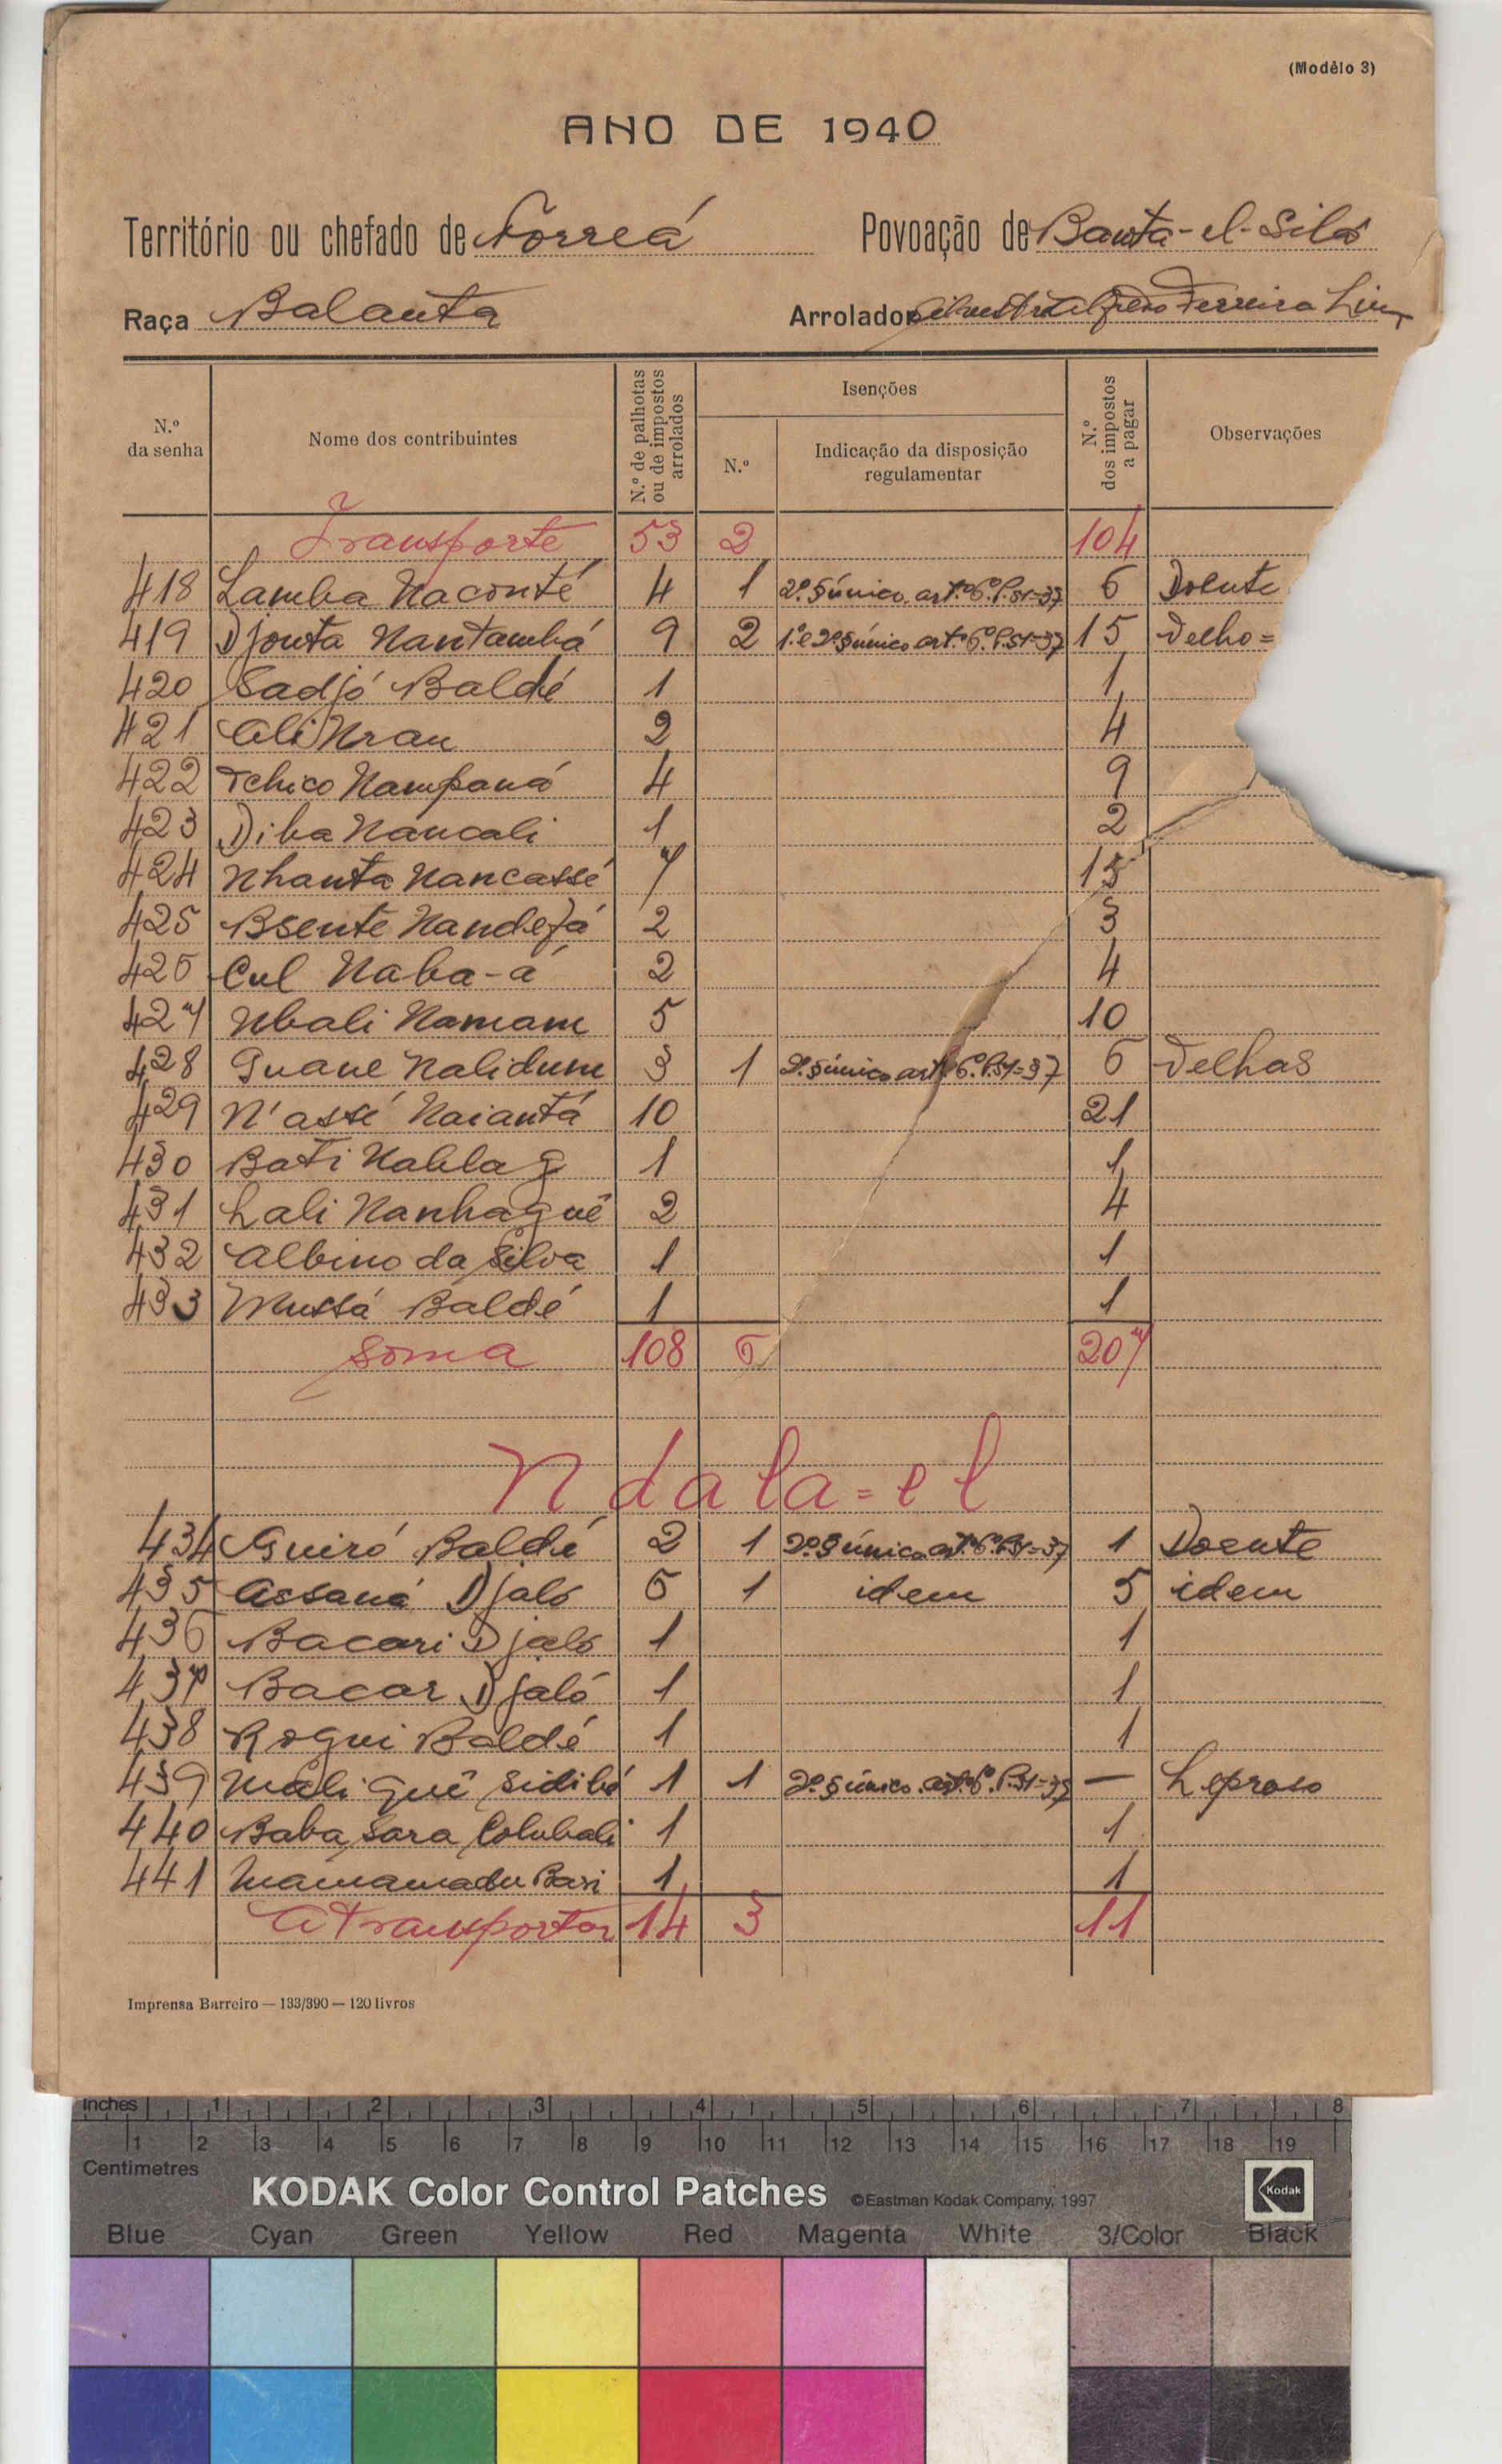 (Modêlo 3)
ANO DE 1940
Território ou chefado de Forreá Povoação de Banta-el-Silá
Raça Balanta Arrolador Alfredo Ferreira
N.º da senha
Nome dos contribuintes
N.º de palhotas ou de impostos arrolados
Isenções
N.º
Indicação da disposição regulamentar
N.º dos impostos a pagar
Observações
Transporte 53 2 104
418 Lamba Naconté 4 1 2º § único artº 6º P. 51=37 6 Doente
419 Djonta Nantambá 9 2 1º e 2º § único artº 6º P. 51=37 15 Velho=
420 Sadjó Baldé 1 1
421 Ali Nran 2 4
422 Tchico Nampaná 4 9
423 Diba Nancali 1 2
424 Nhanta Nancassé 7 15
425 Bsente Nandefá 2 3
426 Cul Naba-á 2 4
427 Nbali Namam 5 10
428 Guane Nalidum 3 1 2º § único artº 6º P. 51=37 6 Velhas
429 N'assé Naiantá 10 21
430 Bati Nablag 1 1
431 Lali Nanhaguê 2 4
432 Albino da Silva 1 1
433 Mussá Baldé 1 1
Soma 108 6 207
Ndala=el
434 Guiró Baldé 2 1 2º § único artº 6º P. 51=37 1 Doente
435 Assaná Djaló 6 1 idem 5 idem
436 Bacari Djaló 1 1
437 Bacar Djaló 1 1
438 Rogui Baldé 1 1
439 Mali Guê Sidibé 1 1 2º § único artº 6º P. 51=37 — Leproso
440 Baba Sara Colubali 1 1
441 Mamamadu Bari 1 1
A Transportar 14 3 11
Imprensa Barreiro — 133/390 — 120 livros
Inches 1 2 3 4 5 6 7 8
1 2 3 4 5 6 7 8 9 10 11 12 13 14 15 16 17 18 19
Centimetres
KODAK Color Control Patches ©Eastman Kodak Company, 1997 Kodak
Blue Cyan Green Yellow Red Magenta White 3/Color Black